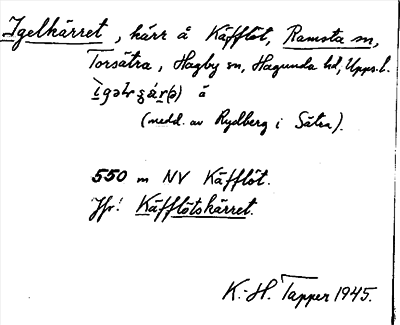 Igelkärret, kärr å Käfflöt, Ramsta sn,
Torsätra, Hagby sn, Hagunda hd, Upps. l.
å
(medd. av Rydberg i Sätra).
550 m NV Käfflöt.
Jfr! Käfflötskärret.
K.-H. Tapper 1945.